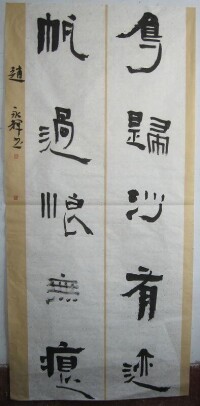 鳥歸沙有迹
帆過浪無痕
趙永輝书